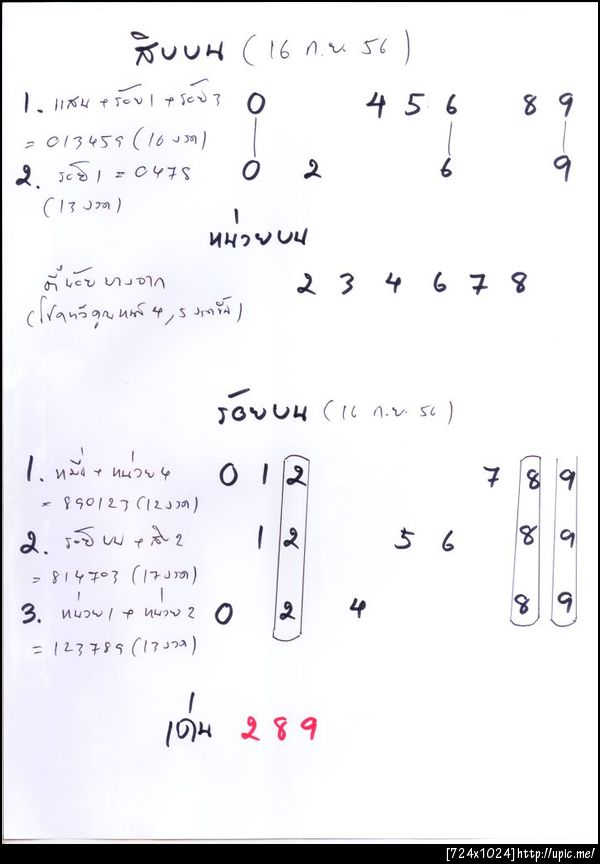 สิบบน (16 ก.ย. 56)
1. แสน + ร้อย 1 + ร้อย 3 0 4 5 6 8 9
= 013459 (16 งวด)
2. ร้อย 1 = 0478 0 2 6 9
(13 งวด)
หน่วยบน
2 3 4 6 7 8
ร้อยบน (16 ก.ย. 56)
1. หมื่น + หน่วย 4 0 1 2 7 8 9
= 890123 (12 งวด)
2. ร้อยบน + สิบ 2 1 2 5 6 8 9
= 814703 (17 งวด)
3. หน่วย 1 + หน่วย 2 0 2 4 8 9
= 123789 (13 งวด)
เด่น 2 8 9
[724x1024]http://upic.me/